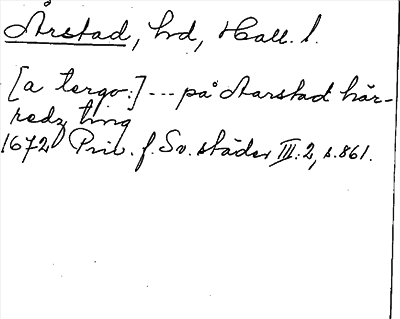 Årstad, hd, Hall. l.
[a tergo:] --- på Aarstad här-
redz ting
1672 Priv. f. Sv. städer III:2, s. 861.